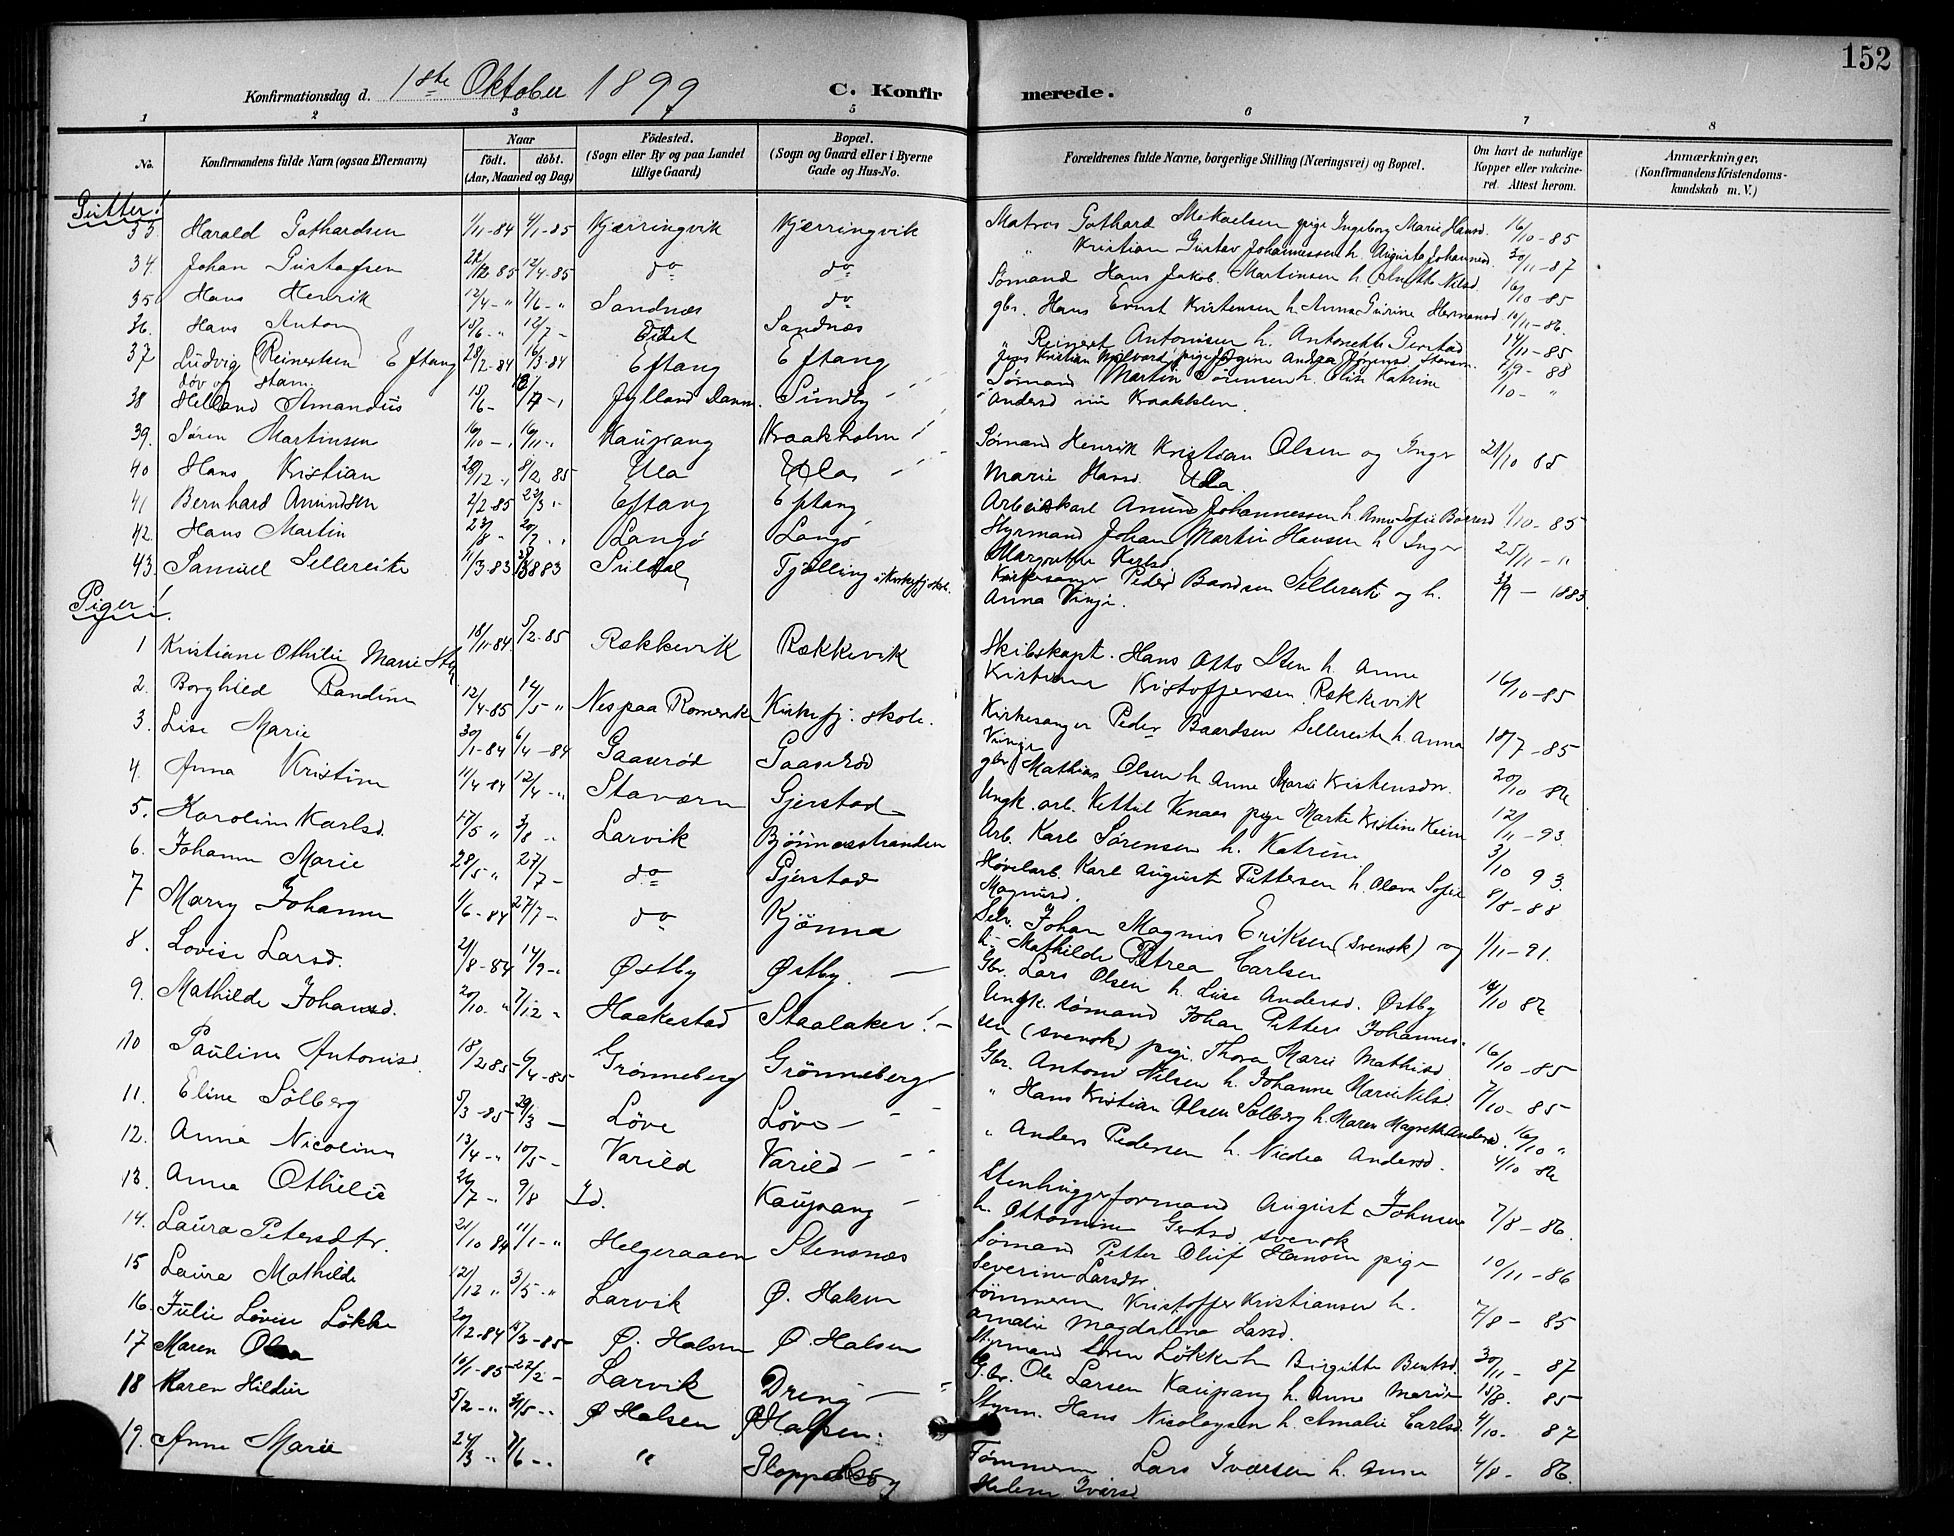 152
Konfirmationsdag d. 1ste Oktober 1899
C. Konfir merede.
1 2 3 5 6 7 8
No.
Konfirmandens fulde Navn (ogsaa Efternavn)
Naar
födt. döbt.
(Aar, Maaned og Dag)
Födested.
(Sogn eller By og paa Landet
tillige Gaard)
Bopæl.
(Sogn og Gaard eller i Byerne
Gade og Hus-No.
Forældrenes fulde Navne, borgerlige Stilling (Næringsvei) og Bopæl.
Om havt de naturlige
Kopper eller vakcine-
ret. Attest herom.
Anmærkninger,
(Konfirmandens Kristendoms-
kundskab m. V.)
Gutter!
33. Harald Gothardsen 1/11-84 4/1-85 Kjærringvik Kjærringvik Matros Gothard Mikaelsen pige Ingeborg Marie Hansd. 16/10-85
34. Johan Gustafsen 12/4-85 do do " Kristian Gustav Johannessen h. Augusta Johannesd. 30/11-87
35 Hans Henrik 12/4-" 7/6-" Sandnæs do Sömand Hans Jakob Martinsen h. Nilsd. 16/10-85
36. Hans Anton 12/7- Sandnæs gbr. Hans Ernst Kristensen h. Anna Gurine Hermansd 10/11-86.
37 Ludvig Reinertsen Eftang 28/2-84 16/3-84 Eftang Eftang " Reinert Antonisen h. Antonette Gerstad 14/11-85
döv og stum
38 Helland Amandus Jylland Danm. Sundby Jens Kristian pige Jörgine Andrea Jörgensd. Stavern 88
39. Sören Martinsen 16/10-" 16/11-" Kaupang Kraakholm! Sömand Martin Sörensen h. Elise Katrine
Andersd
40 Hans Kristian 28/12-" 8/2 85 Ula Ula Sömand Henrik Kristian Olsen og Inger 21/10 85
Marie Hansd. Ula.
41 Bernhard Amundsen 2/2-85 22/3-" Eftang Eftang Arbeidskarl Amund Johannessen h. Anne Sofie Börresd 1/10-85
42. Hans Martin Langö Langö Styrmand Johan Martin Hansen h. Inger 25/11-"
Margrethe Karlsd.
43. Samuel Sellereite 11/3-83 Tjölling i Kirkefj. skole. Kirkesanger Peder Baardsen Sellereite og h. 1883.
Anna Vinje.
Piger!
1 Kristiane Othilie Marie Sten 18/11-84 5/2-85 Rækkevik Rækkevik Skibskapt. Hans Otto Sten h. Anne
Kristiane Kristoffersen Rækkevik 16/10-85
2. Borghild Randine 12/4-85 14/5-" Nes paa Romerike Kirkefj. skole. Kirkesanger Peder Baardsen Sellereite h. Anna 18/7-85
Vinje
3. Lise Marie 30/1-84 6/4-84 Gaaserød Gaaserød gbr. Mathias Olsen h. Anne Marie Kristensdtr. 20/10 86
4. Anna Kristine 11/4-84 12/4-" Staværn Gjerstad Ungk. arb. Kettil Venaas pige Marte Kristine 12/11-93
5. Karoline Karlsd. 17/5 " 3/8-" Larvik Bjönnesstranden Arb. Karl Sörensen h. Katrine 3/10 93.
6. Johanne Marie 28/5 " 27/7- do Gjerstad Hövelarb. Karl August Pettersen h. Olava Sofie 8/8-88
Magnusd.
7 Marry Johanne 1/6-84 27/7- do Kjönna Selv. Johan Magnus Eriksen (svensk) og 1/11-91.
h. Mathilde Petrea Carlsen
8. Lovise Larsd. 21/8-84 14/9-" Østby Østby. Gbr. Lars Olsen h. Lise Andersd. Østby 14/10 86
9. Mathilde Johansd. 20/10-" 7/12-" Haakestad Staalaker! Ungk. sömand Johan Petter Johannes-
sen (svensk) pige Thora Marie Mathisd. 16/10-85
10 Pauline Antonisd. 18/2 85 6/4-85 Grønneberg Grönneberg Gbr. Anton Nilsen h. Johanne Marie Nilsd. 7/10-85
11. Eline Sölberg 5/3-85 29/3- Löve Löve " Hans Kristian Olsen Solberg h. Maren Magrethe Andersd. 16/10 "
12. Anna Nicoline 13/4-" 10/5- Varild Varild " Anders Pedersen h. Nicolea Andersd. 4/10 86
13. Anna Othilie 26/7-" 9/8 Id. Kaupang Stenhuggerformand August Johnsen 7/8-86.
h. Ottomine Gertsd. svensk
14. Laura Petersdtr. 21/10 84 11/1-" Helgeraaen Stensnæs Sömand Petter Oluf Hansen pige 10/11-86
Severine Larsdtr.
15 Laura Mathilde 12/12 " 3/5-" Larvik Ø. Halsen Tömmerm. Kristoffer Kristiansen h. 7/8-85
Amalie Magdalena Larsd.
16. Julie Lovise Lökke 20/12-84 15/3-85 Ø. Halsen Ø. Halsen Styrmand Sören Lökke h. Birgitte Berntsd. 30/11-87
17 Maren 10/1-85 22/2- Larvik Dreng Gbr. Ole Larsen Kaupang h. Anne Marie 15/8. 85
18 Karen Hildur 5/2-" 31/5-" Ø Halsen Ø Halsen. Styrm. Hans Nicolaysen h. Amalie Carlsd. 4/10-87
19. Anne Marie 24/3-" 7/6-" " Tömmerm. Lars Iversen h. Anne 4/8-86.
Helene Iversd